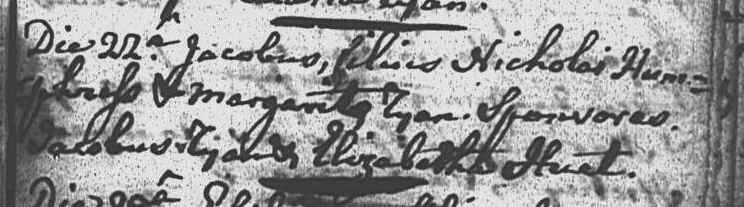 Die 22.ª Jacobus, filius Nicholai Hum=
phryss & Margarita Tyan. Sponsores.
Jacobus Tyan & Elizabetha Huet.
Die